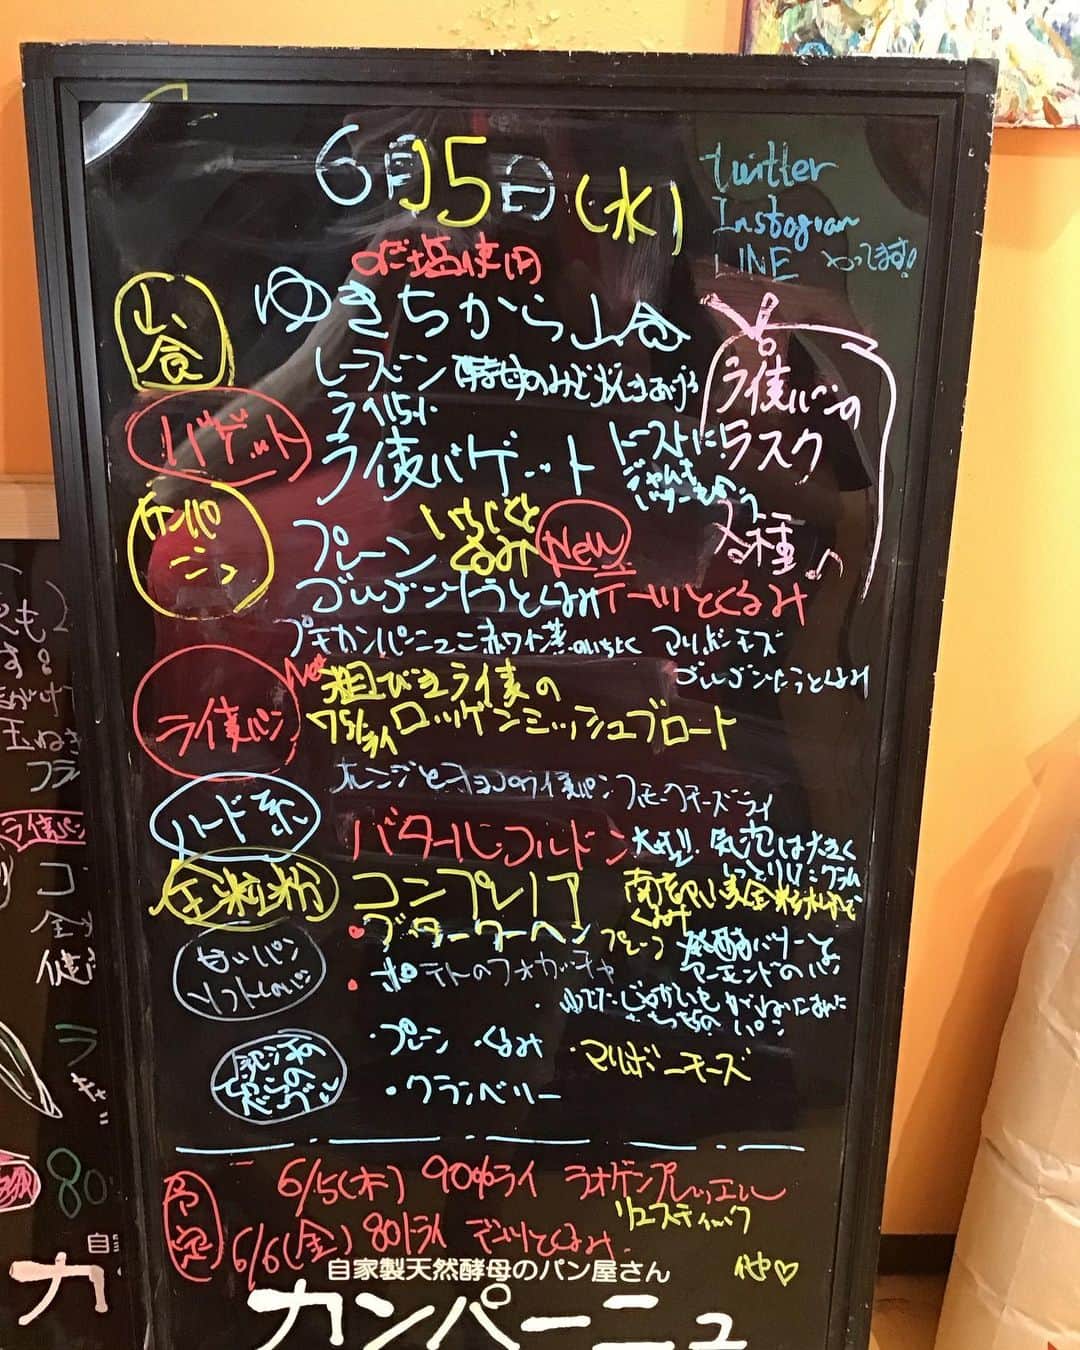 6月5日(水)
Twitter
Instagram
LINE やってます!
のだ塩使用
山食
ゆきちから山食
レーズン 酵母のみ
ライ麦パンの
ラスク
各種♪
バゲット
ライ15%
ライ麦バゲット
トーストに!
カンパーニュ
プレーン
いちじくと
くるみ
New
ゴルゴンゾーラとくるみ
デーツとくるみ
プチカンパーニュ 赤ワイン漬いちじく マリボーチーズ
ゴルゴンゾーラとくるみ
ライ麦パン
New
粗びきライ麦の
75%ライ ロッゲンミッシュブロート
オレンジとチョコのライ麦パン スモークチーズライ
ハード系
バタールコルドン
大型 気泡は大きく
全粒粉
コンプレノア
南部小麦全粒粉
くるみ
甘いパン
ソフトなパン
ブッタークーヘン プレーン
発酵バターと
アーモンドのパン
ポテトのフォカッチャ
ゆでたじゃがいも
もっちもちのパン
ベーグル
・プレーン ・くるみ ・マリボーチーズ
・クランベリー
予定
6/5(木) 90%ライ ラオゲンプレッツェル
リュスティック
6/6(金) 80%ライ デーツとくるみ
他♡
自家製天然酵母のパン屋さん
カンパーニュ